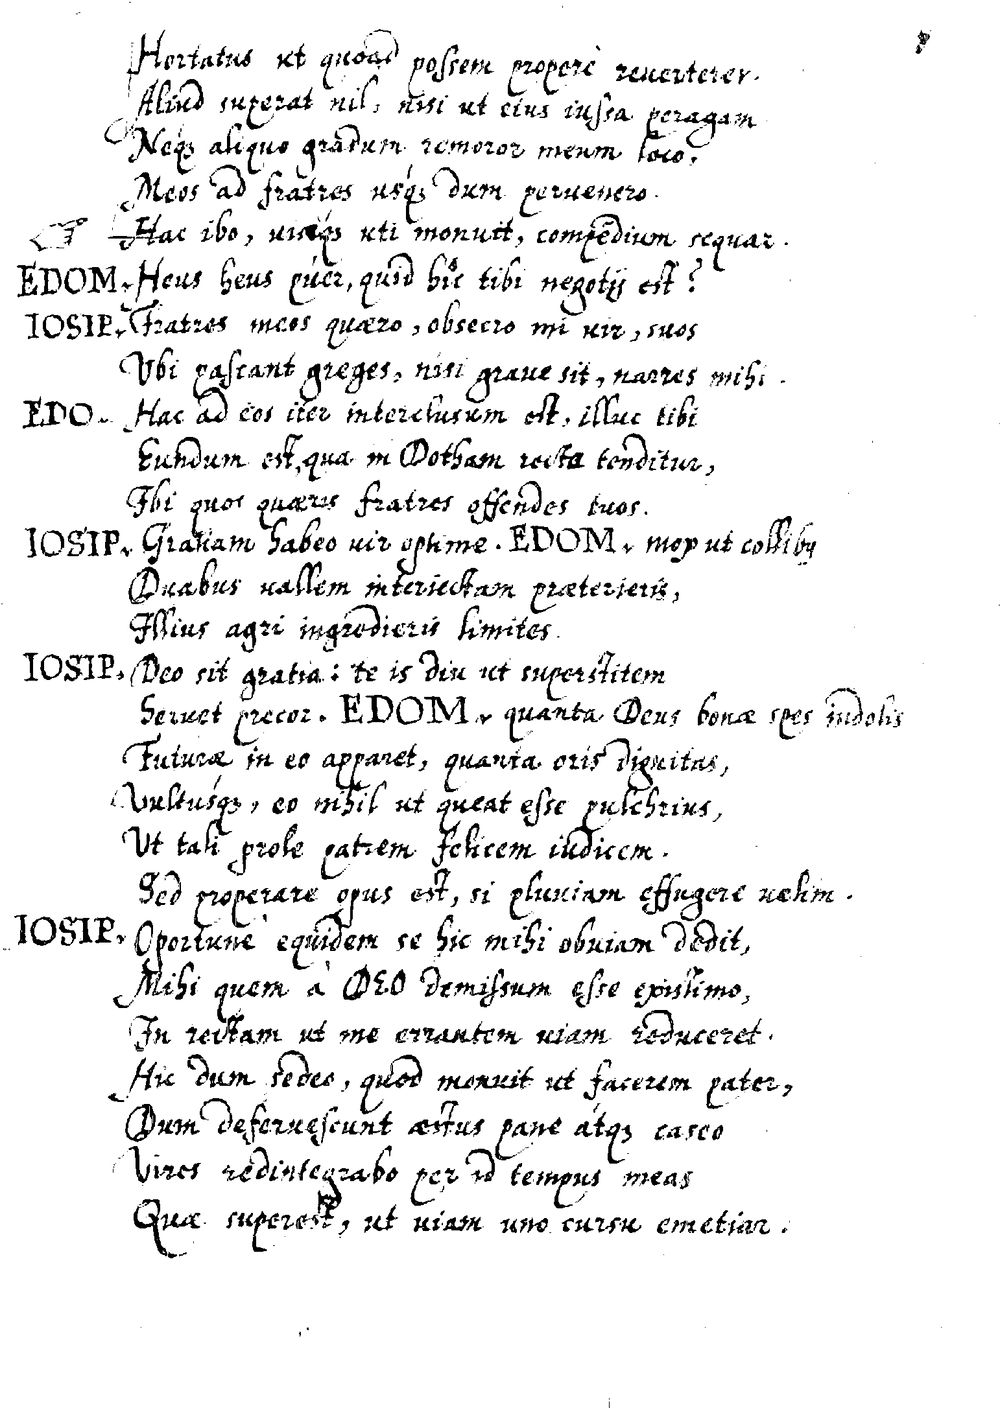 Hortatus ut quoad possem properè reuerterer.
Aliud superat nil, nisi ut eius iussa peragam
Neqꝫ aliquo gradum remoror meum loco,
Meos ad fratres usqꝫ dum peruenero.
Hac ibo, uiáqꝫ uti monuit, compēdium sequar.
EDOM. Heus heus puer, quid hic tibi negotij est?
IOSIP. Fratres meos quæro, obsecro mi uir, suos
Vbi pascant greges, nisi graue sit, narres mihi.
EDO. Hac ad eos iter interclusum est, illuc tibi
Eundum est, qua in Dotham recta tenditur,
Ibi quos quæris fratres offendes tuos.
IOSIP. Gratiam habeo uir optime. EDOM. mox ut collibꝫ
Duabus uallem interiectam præterieris,
Illius agri ingredieris limites.
IOSIP. Deo sit gratia: te is diu ut superstitem
Seruet precor. EDOM. quanta Deus bonæ spes indolis
Futuræ in eo apparet, quanta oris dignitas,
Vultusqꝫ, eo nihil ut queat esse pulchrius,
Ut tali prole patrem felicem iudicem.
Sed properare opus est, si pluuiam effugere uelim.
IOSIP. Oportunè equidem se hic mihi obuiam dedit,
Mihi quem à DEO demissum esse existimo,
In rectam ut me errantem uiam reduceret.
Hic dum sedeo, quod monuit ut facerem pater,
Dum deferuescunt æstus pane átqꝫ caseo
Vires redintegrabo per id tempus meas
Quæ superest, ut uiam uno cursu emetiar.